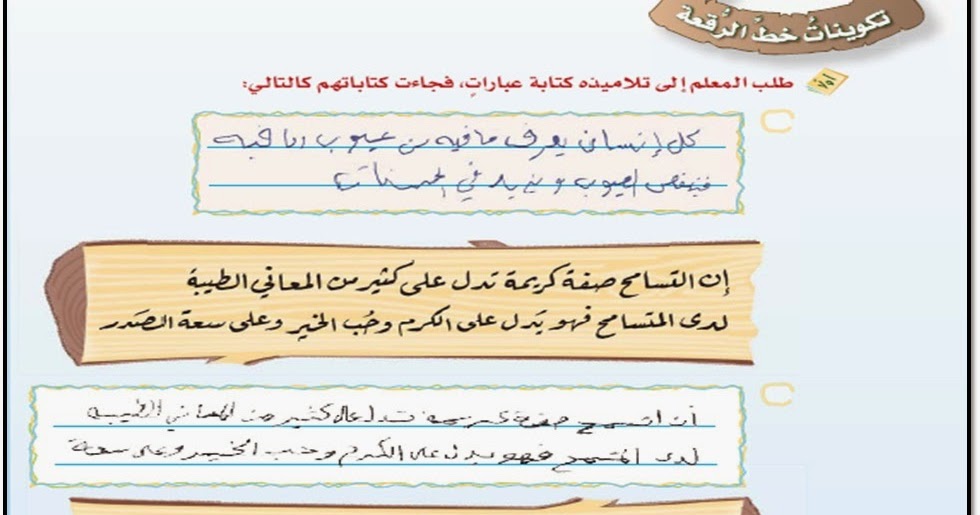 تكوينات خط الرقعة
أولا
طلب المعلم إلى تلاميذه كتابة عباراتٍ، فجاءت كتاباتهم كالتالي:
كل إنسان يعرف ما فيه من عيوب
العيوب و في الحسنات
إن التسامح صفة كريمة تدل على كثير من المعاني الطيبة
لدى المتسامح فهو يَدل على الكرم وحُب الخير وعلى سعة الصَدر
صفة كريمة تدل على كثير من المعاني الطيبة
لدى المتسمح فهو يدل على الكرم وحب الخير وعلى سعة